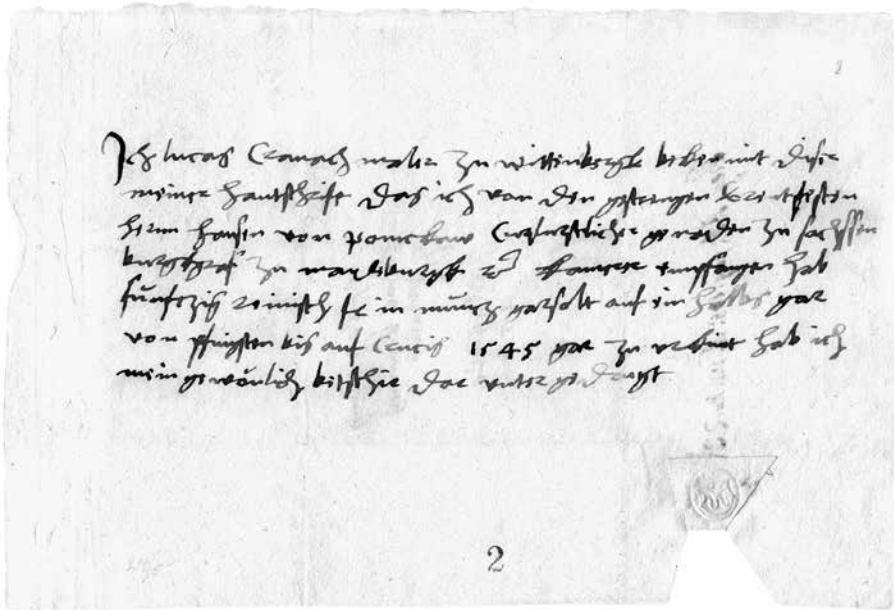 2
Ich lucas Cranach maler zu wittenbergk beken mit diser
meiner hantschrift das ich von den gestrengen
herrn hansen von ponickaw Curfurstlicher genaden zu sachssen
burggraf zu magdeburgk kamerer empfangen hab
funfczig reinisch fl in muncz garsolt auf ein halbes gar
von pfingsten bis auf Crucis 1545 gar zu urkunt hab ich
mein gewonlich betschir dar unter gedrugt
2